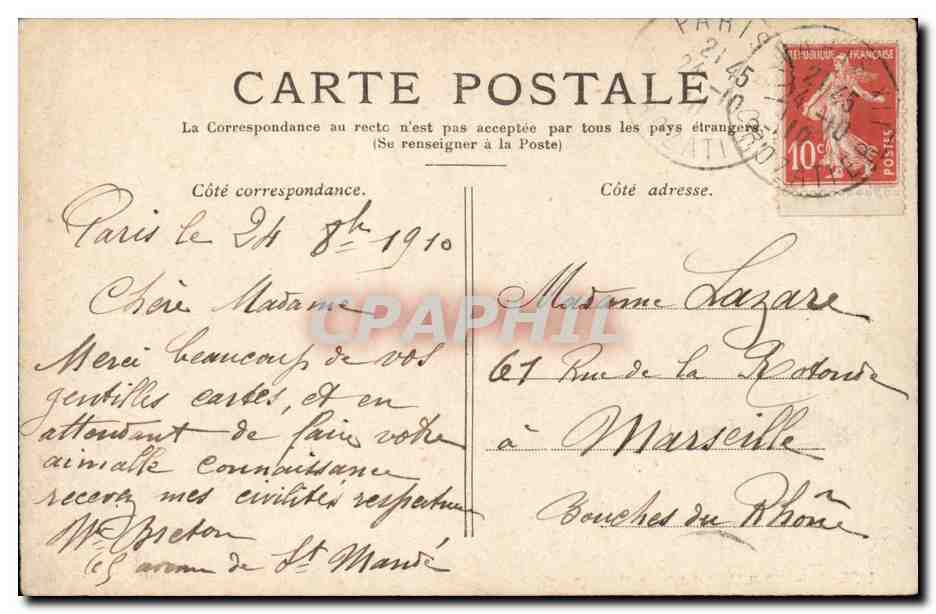 CARTE POSTALE
La Correspondance au recto n'est pas acceptée par tous les pays étrangers
(Se renseigner à la Poste)
Côté correspondance.
Paris le 24 8bre 1910
Chère Madame
Merci beaucoup de vos
gentilles cartes, et en
attendant de faire votre
aimalle connaissance
recevez mes civilités respectueu
Me Breton
65 avenue de St Mandé
Côté adresse.
Madame Lazare
61 Rue de la Rotonde
à Marseille
Bouches du Rhône
RÉPUBLIQUE FRANÇAISE
10c
POSTES
PARIS
21 45
24 -10
10
CPAPHIL